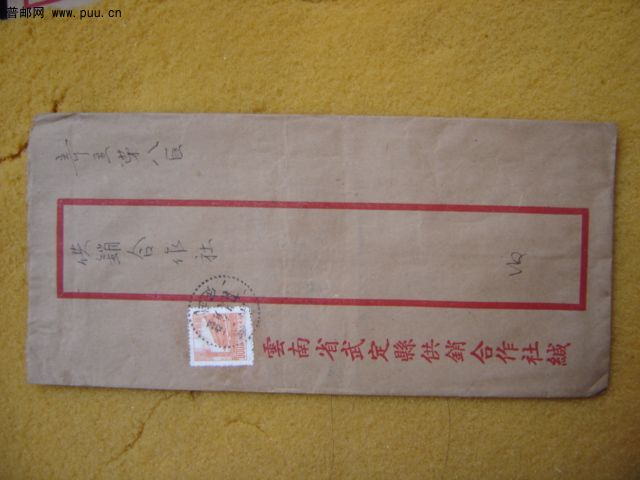 普邮网 www.puu.cn
第八区
供銷合作社
雲南省武定縣供銷合作社緘